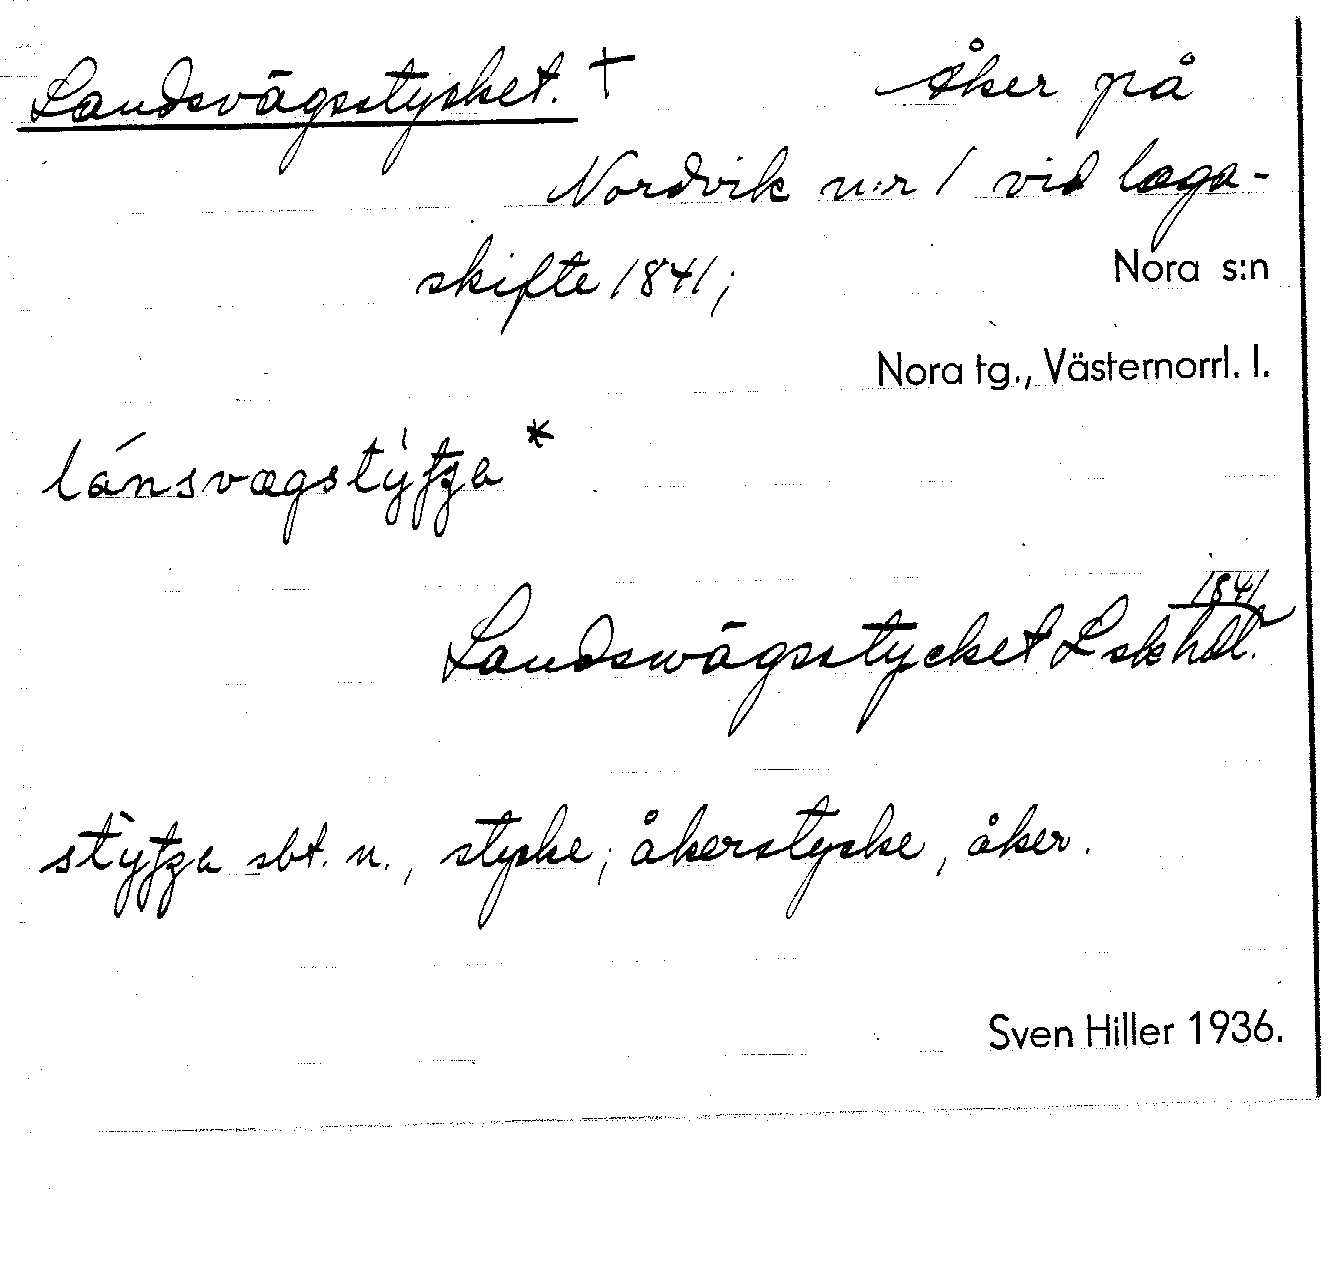 Landsvägsstycket. † Åker på
Nordvik n:r 1 vid laga-
skifte 1841;
Nora s:n
Nora tg., Västernorrl. l.
Landswägsstycket Lskhdl. 1841
sbt. n., stycke; åkerstycke, åker.
Sven Hiller 1936.